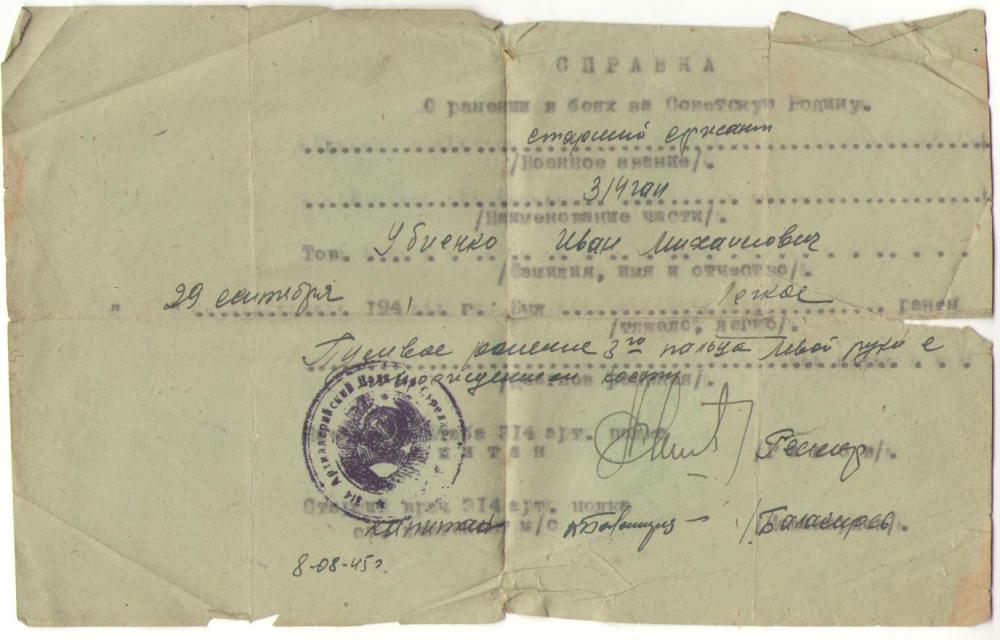 СПРАВКА
О ранении в боях за Советскую Родину.
старший сержант
/Военное звание/.
314 гап
/Наименование части/.
Тов. Убиенко Иван Михайлович
/Фамилия, имя и отчество/.
" 29 сентября 1941 г. был Легкое ранен
/тяжело, легко/.
Пулевое ранение 3го пальца левой руки с
костей
штаба 314 арт. полка
капитан
Старший врач 314 арт. полка
капитан м/с
314 Артиллерийский
8-08-45 г.